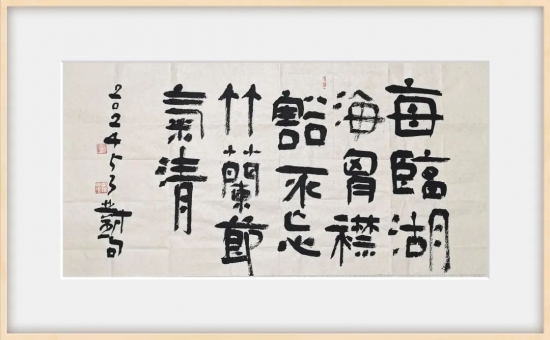 每臨湖
海胷襟
豁不忘
竹蘭節
氣清
2024.5.3